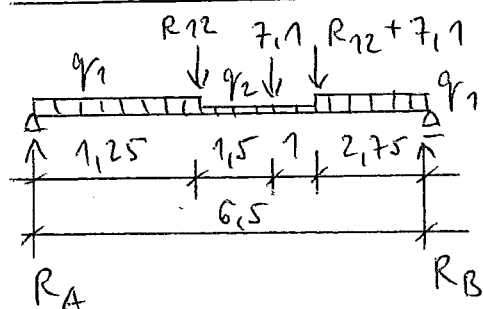 R12 7,1 R12 + 7,1
q1 q2 q1
1,25 1,5 1 2,75
6,5
RA RB